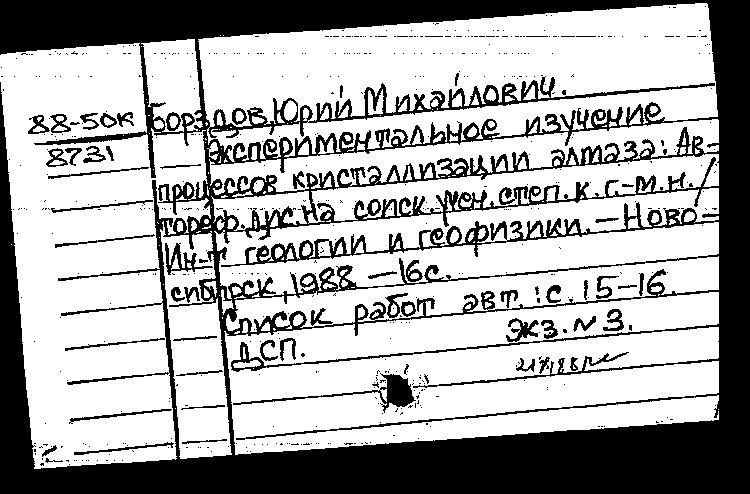 88-50к
8731
Борздов, Юрий Михайлович.
Экспериментальное изучение
процессов кристаллизации алмаза: Ав-
тореф. дис. на соиск. учен. степ. к. г.-м. н. /
Ин-т геологии и геофизики. — Ново-
сибирск, 1988 — 16 с.
Список работ авт.: с. 15-16.
Экз. N 3.
ДСП.